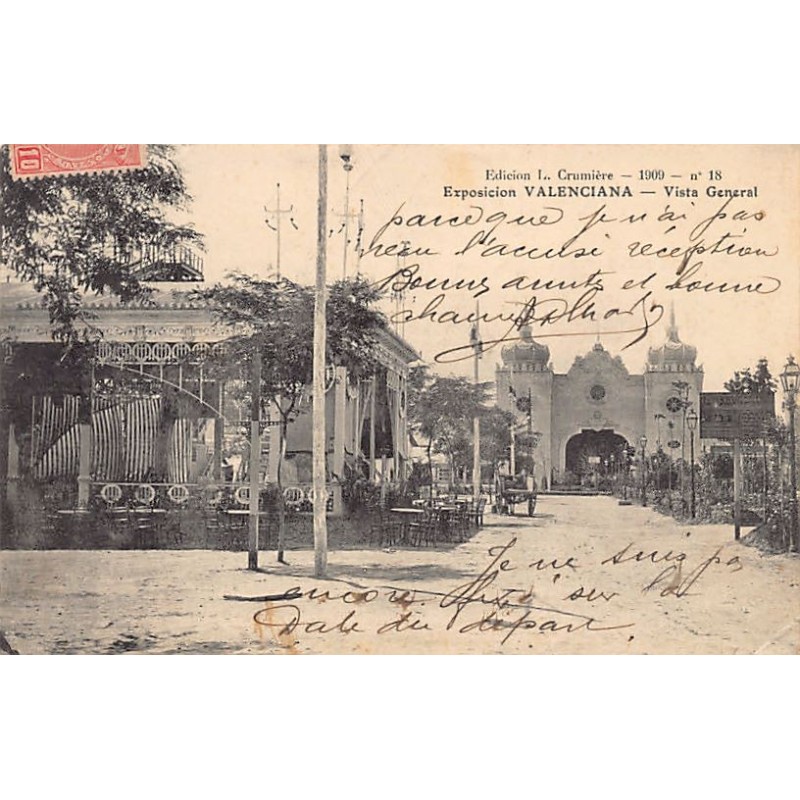 10
Edicion L. Crumière — 1909 — n° 18
Exposicion VALENCIANA — Vista General
parceque je n'ai pas
reçu l'accusé réception
Bonne et bonne
chance
Je ne suis pas
encore fixé sur la
Date du départ